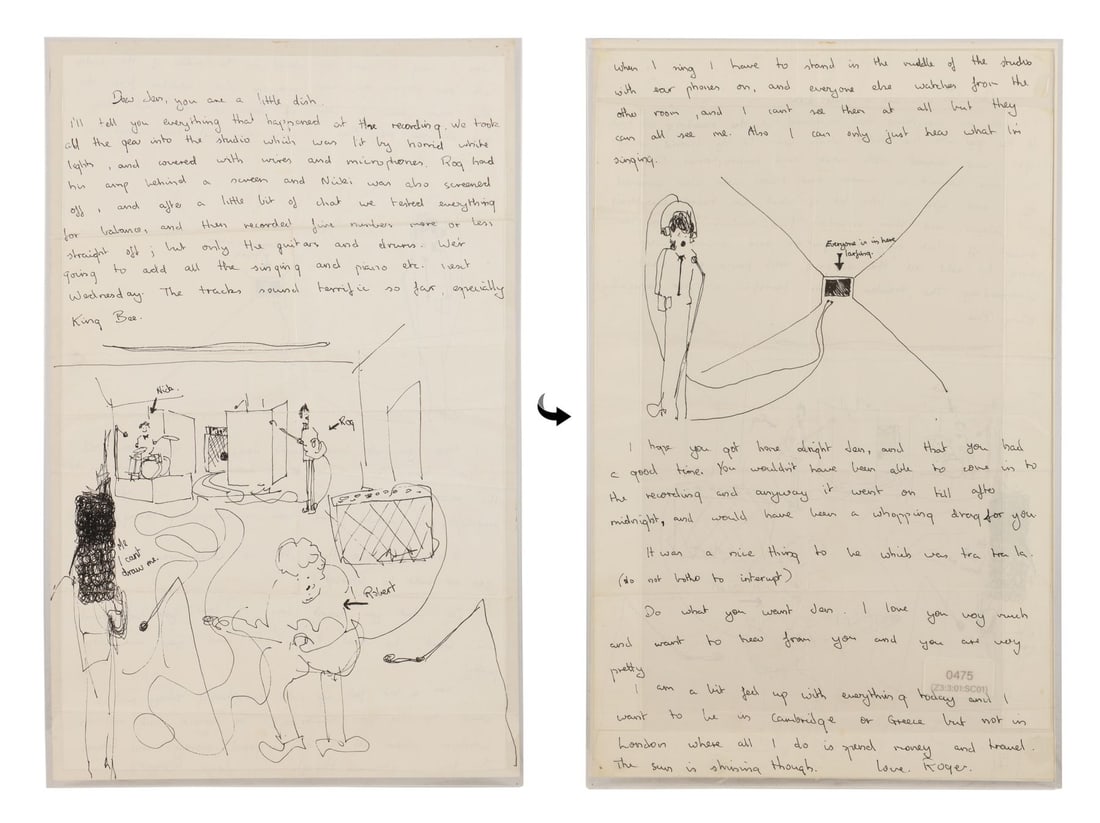 Dear Jen, you are a little dish.
I'll tell you everything that happened at the recording. We took
all the gear into the studio which was lit by horrid white
lights, and covered with wires and microphones. Rog had
his amp behind a screen and Nicki was also screened
off, and after a little bit of chat we tested everything
for balance, and then recorded five numbers more or less
straight off; but only the guitars and drums. We're
going to add all the singing and piano etc. next
Wednesday. The tracks sound terrific so far, especially
King Bee.
Nicki.
Rog
Me
I cant
draw me.
Robert
When I sing I have to stand in the middle of the studio
with ear phones on, and everyone else watches from the
other room, and I cant see them at all but they
can all see me. Also I can only just hear what I'm
singing.
Everyone is in here
larfing.
I hope you got home alright Jen, and that you had
a good time. You wouldn't have been able to come in to
the recording and anyway it went on till after
midnight, and would have been a whopping drag for you
It was a nice thing to be which was tra tra la.
(do not bother to interupt)
Do what you want Jen. I love you very much
and want to hear from you and you are very
pretty
I am a bit fed up with everything today and I
want to be in Cambridge or Greece but not in
London where all I do is spend money and travel.
The sun is shining though. Love. Roger.
0475
(Z3:3:01:SC01)